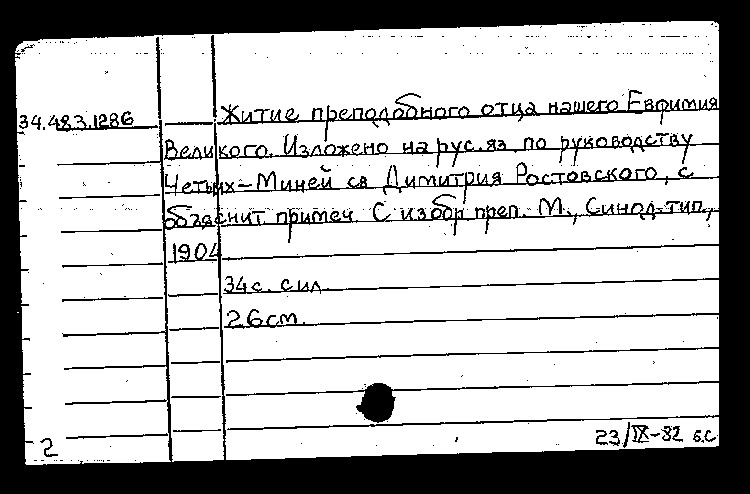 34.483.1286 Житие преподобного отца нашего Евфимия
Великого. Изложено на рус. яз. по руководству
Четьих-Миней св Димитрия Ростовского, с
объяснит примеч. С изобр преп. М., Синод.тип.,
1904
34 с. с ил.
26 см.
2 23/IX-82 б.с